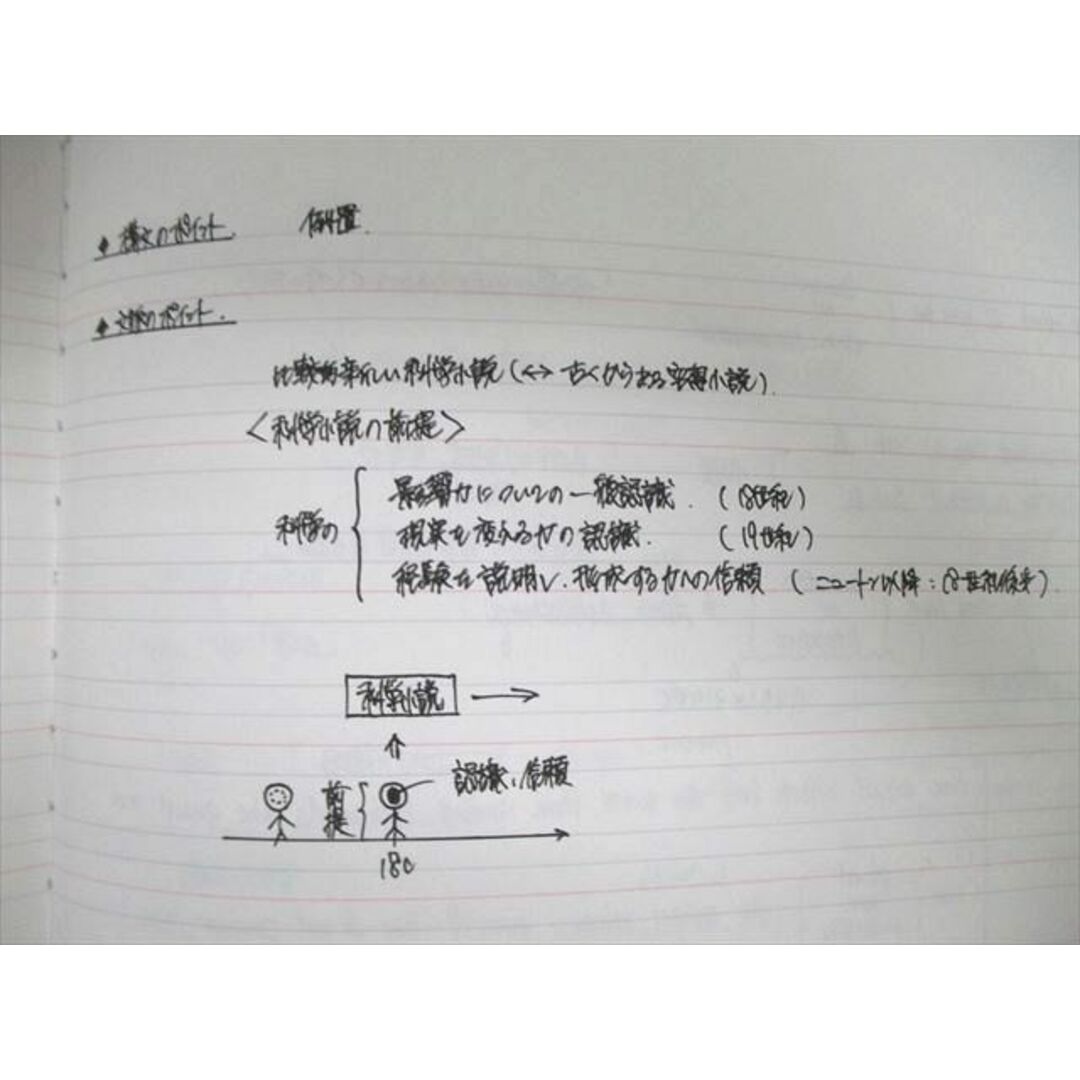 ◆ 構文のポイント. 倒置.
◆ 文脈のポイント.
比較的新しい科学小説 (↔ 古くからある空想小説).
<科学小説の前提>
影響力についての一般認識. (18世紀)
科学の 現実を変える力の認識. (19世紀)
経験を説明し、形成する力への信頼 (ニュートン以降:18世紀後半).
科学小説 →
⇑
認識、信頼
前提
18C